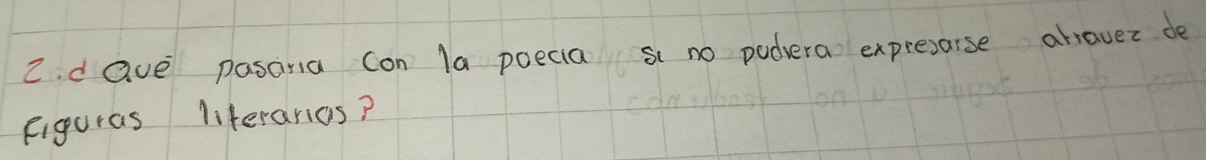 2. ¿ Qué pasaria con la poecia si no pudiera expresarse atravez de
figuras literarias?